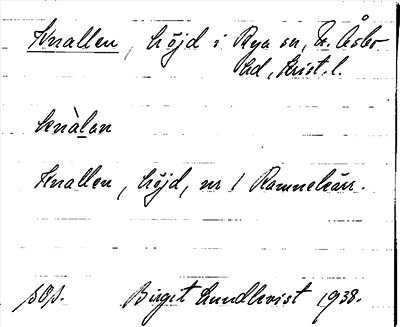 Knallen, höjd i Rya sn, N. Åsbo
Hd, Krist. l.
knàlan
Knallen, höjd, nr 1 Ramnekärr.
sos. Birgit Lundkvist 1938.